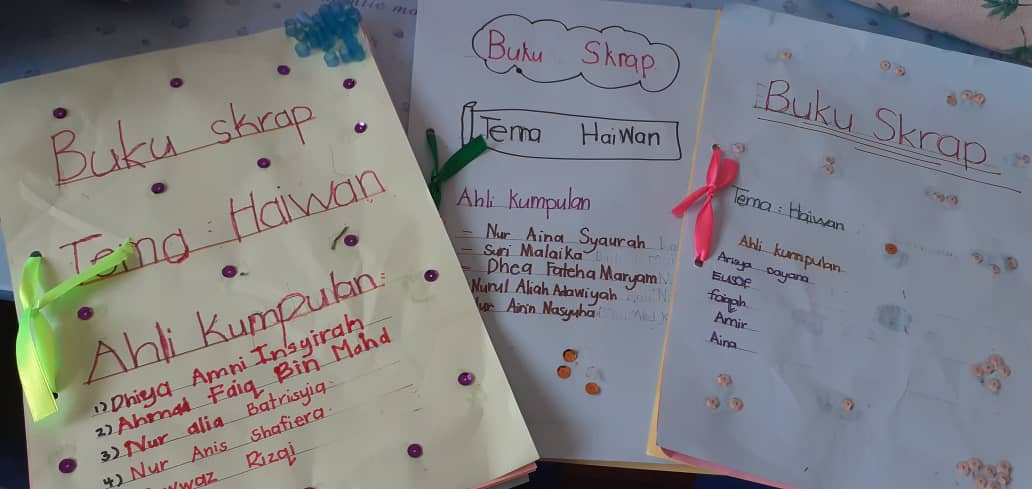 Buku skrap
Tema : Haiwan
Ahli Kumpulan:
1) Dhiya Amni Insyirah
2) Ahmad Faiq Bin Mohd
3) Nur alia Batrisyia
4) Nur Anis Shafiera
Rizqi
Buku Skrap
Tema Haiwan
Ahli Kumpulan
- Nur Aina Syaurah
- Suri Malaika
- Dhea Fateha Maryam
Nurul Aliah Adawiyah
Nur Airin Nasyuha
Buku Skrap
Tema : Haiwan
Ahli kumpulan
Arisya dayana
Eusof
faiqah
Amir
Aina